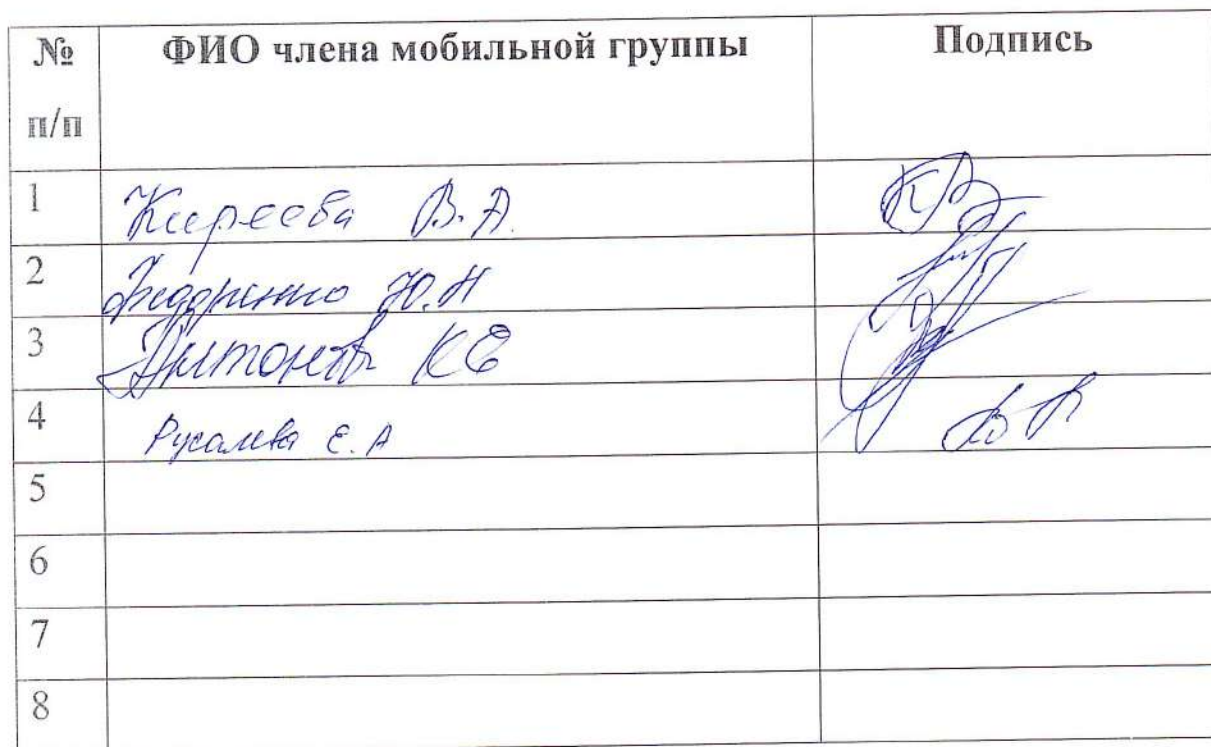 № п/п ФИО члена мобильной группы Подпись
1 Киреева В.А.
2 Федоренко Ю.Н
3 КЕ
4 Е.А
5
6
7
8